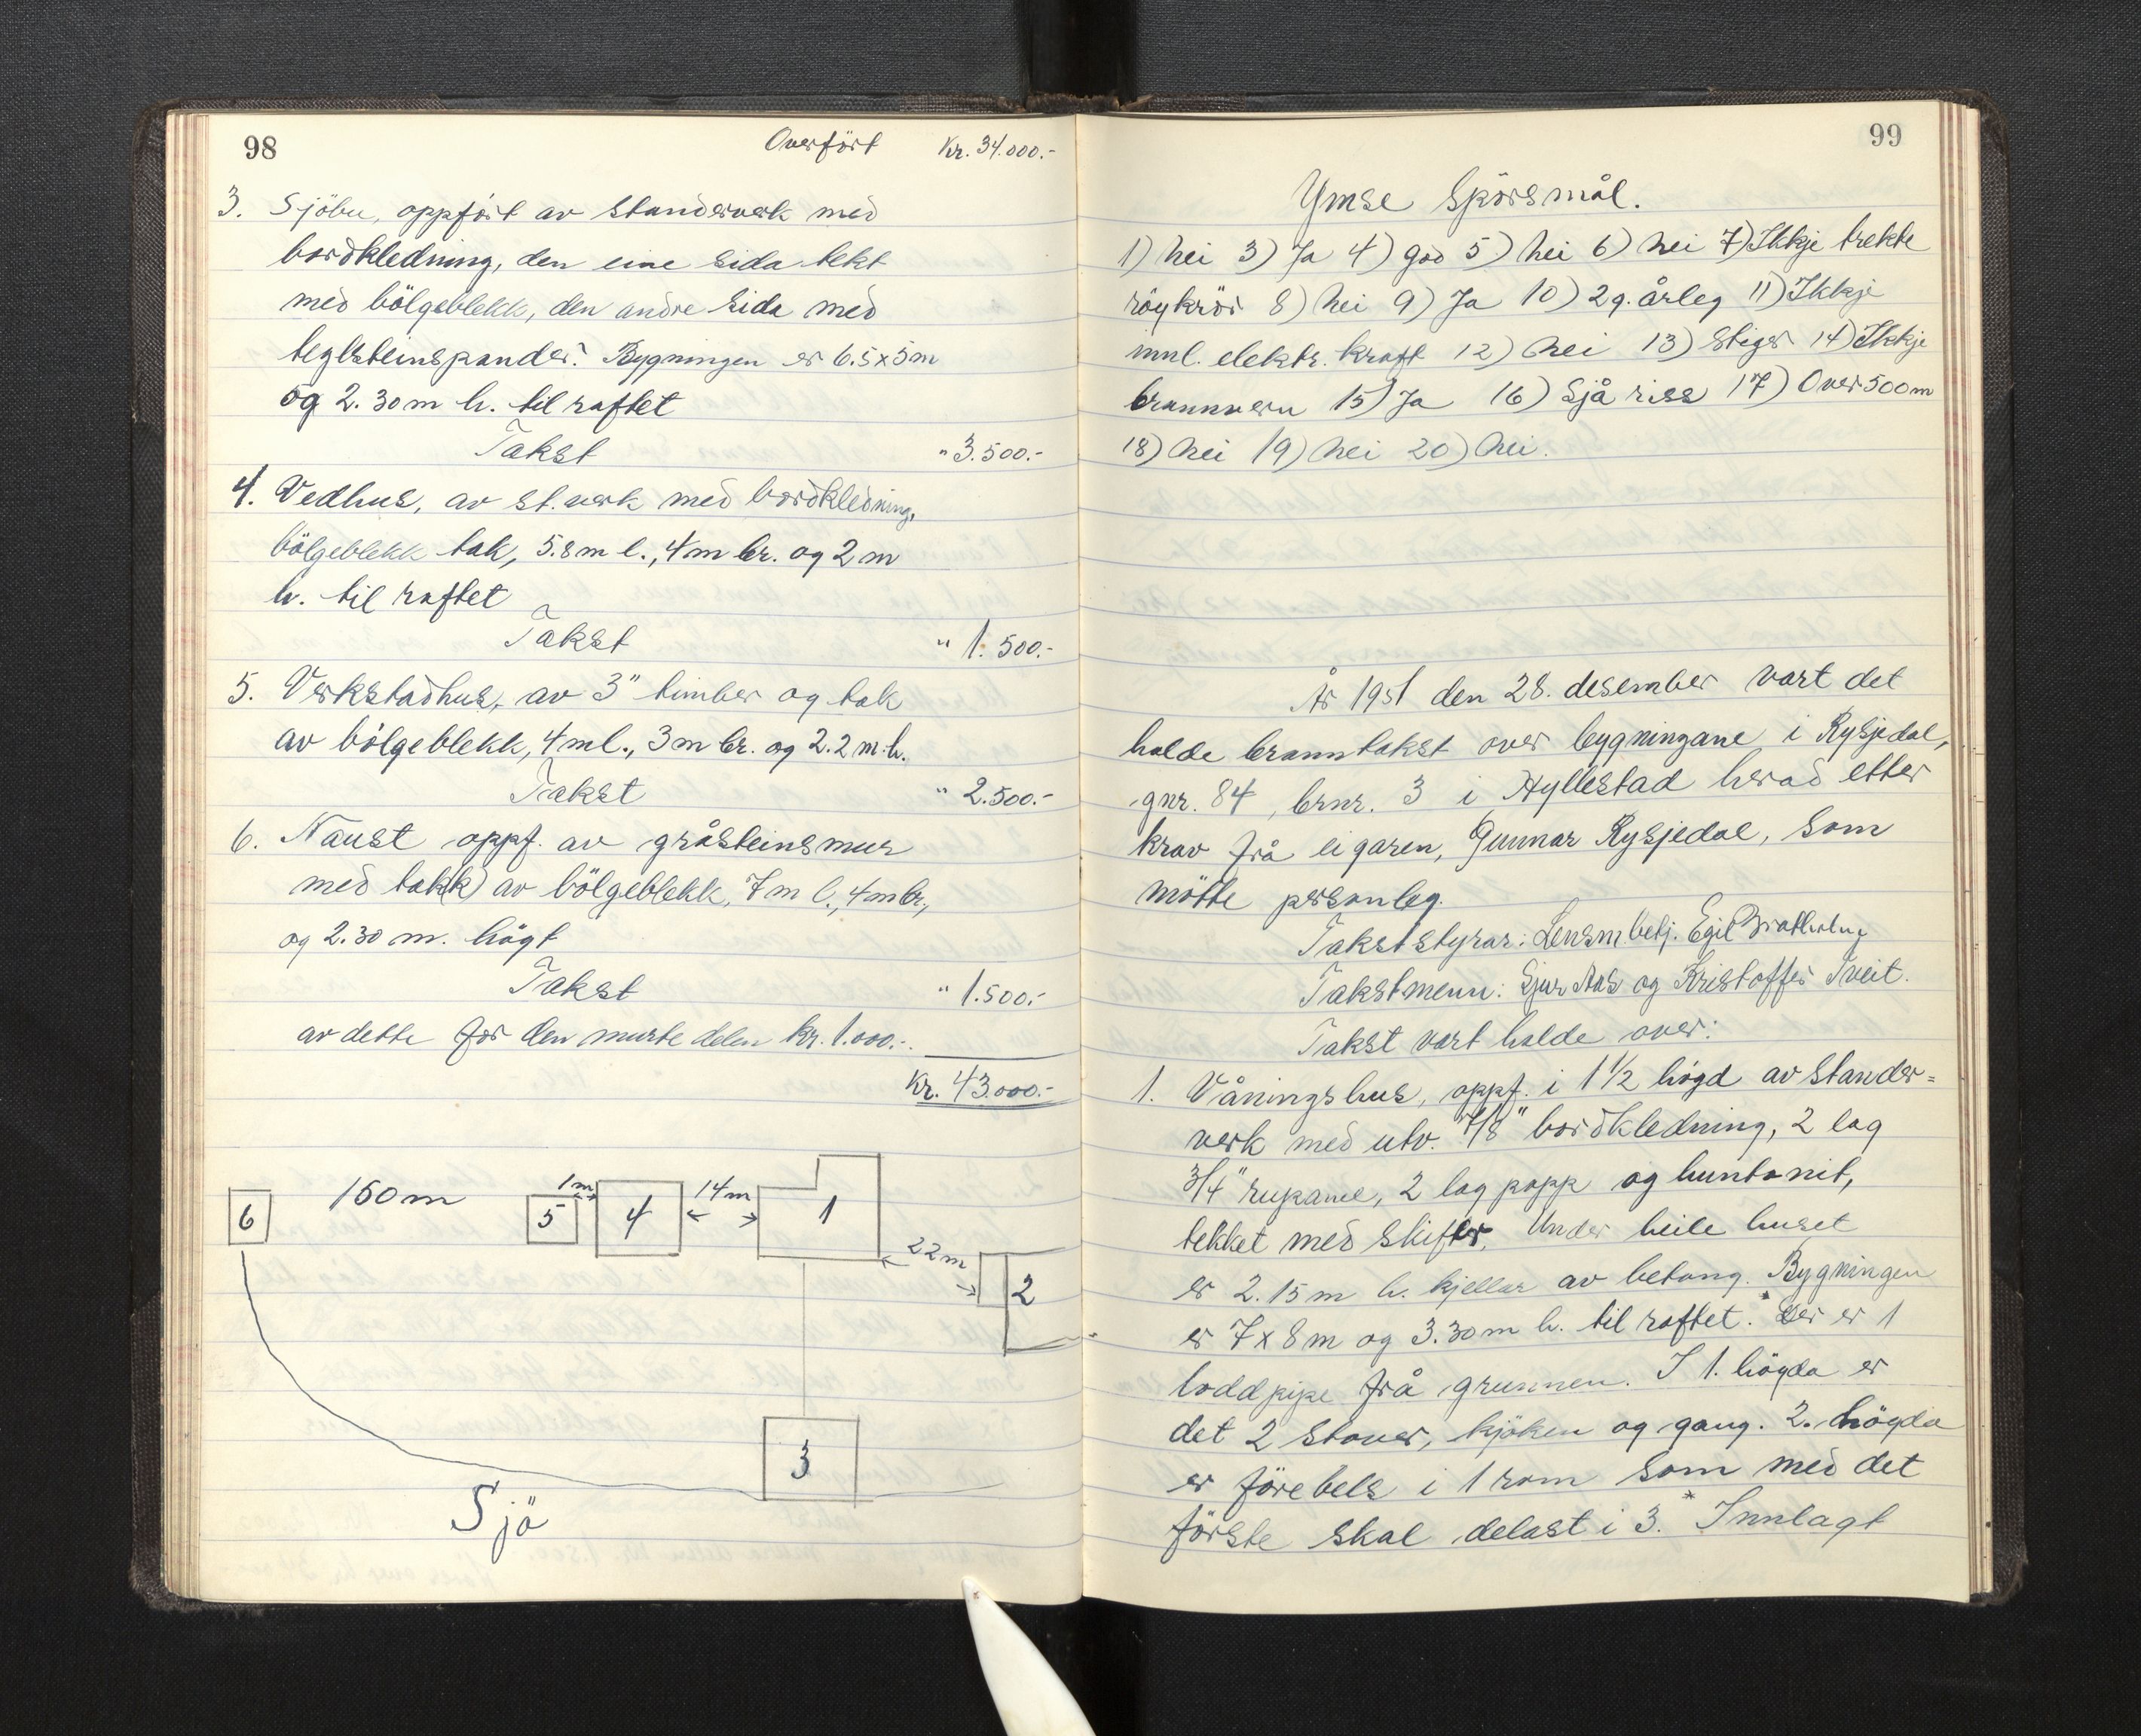 98
Overfört Kr. 34.000.-
3. Sjöbu, oppfört av standerverk med
bordkledning, den eine sida tekt
med bölgeblekk, den andre sida med
teglsteinspander. Bygningen er 6.5x5m
og 2.30m h. til raftet
Takst " 3.500.-
4. Vedhus, av st.verk med bordkledning,
bölgeblekk tak, 5.8m l., 4m br. og 2m
h. til raftet
Takst " 1.500.-
5. Verkstadhus, av 3" timber og tak
av bölgeblekk, 4m l., 3m br. og 2.2 m.h.
Takst " 2.500.-
6. Naust oppf. av gråsteinsmur
med tak(k) av bölgeblekk, 7m l., 4m br.,
og 2.30 m. högt
Takst " 1.500.-
av dette for den murte delen kr. 1.000.-.
Kr. 43.000.-
6 150m 5 1m 4 14m 1
22m
2
3
Sjö
99
Ymse Spörsmål.
1) nei 3) Ja 4) god 5) nei 6) nei 7) Ikkje trekte
röykrör 8) nei 9) Ja 10) 2 g. årleg 11) Ikkje
innl. elektr. kraft 12) nei 13) Stiger 14) Ikkje
brannvern 15) Ja 16) Sjå riss 17) Over 500m
18) nei 19) nei 20) nei.
År 1951 den 28. desember vart det
halde branntakst over bygningane i Rysjedal,
gnr. 84, brnr. 3 i Hyllestad herad etter
krav frå eigaren, Gunnar Rysjedal, som
mötte personleg.
Takststyrar: Lensm.betj. Egil
Takstmenn: Sjur Aas og Kristoffer Tveit.
Takst vart halde over:
1. Våningshus, oppf. i 1 1/2 högd av stander=
verk med utv. 7/8" bordkledning, 2 lag
3/4" rupanel, 2 lag papp og huntonit,
tekket med skifer. Under heile huset
er 2.15m h. kjellar av betong. Bygningen
er 7x8m og 3.30m h. til raftet. Der er 1
loddpipe frå grunnen. I 1. högda er
det 2 stover, kjöken og gang. 2. högda
er förebels i 1 rom som med det
förste skal delast i 3.* Innlagt